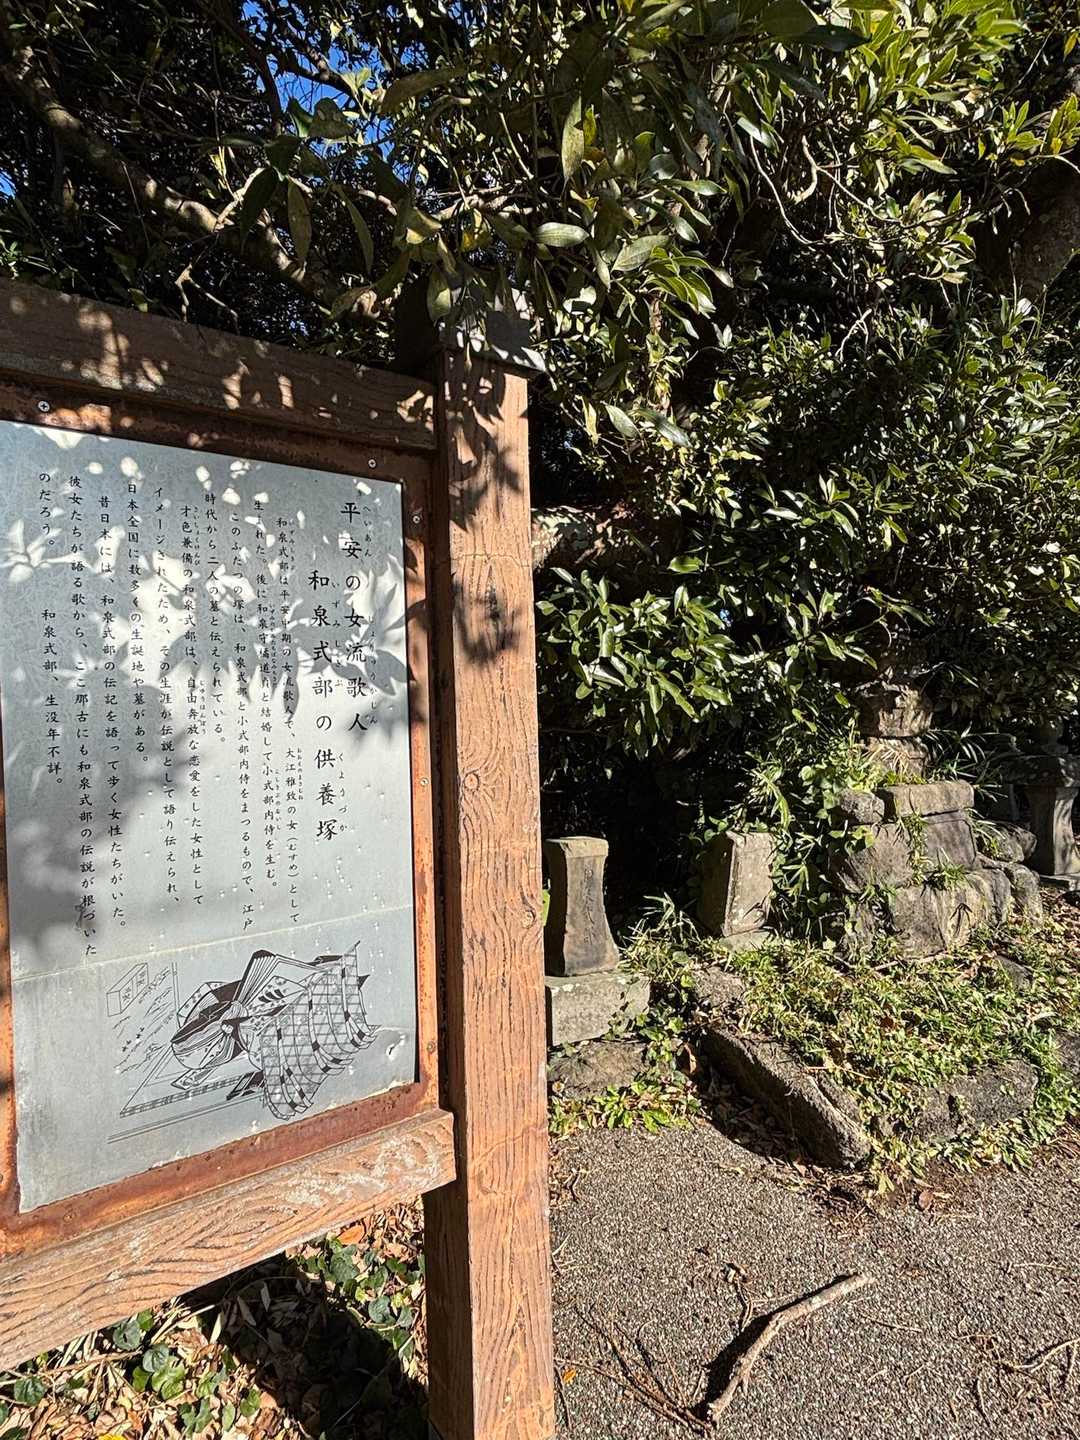 平安の女流歌人
へいあん じょりゅうかじん
和泉式部の供養塚
いずみしきぶ くようづか
和泉式部は平安中期の女流歌人で、大江雅致の女（むすめ）として
生まれた。後に和泉守橘道貞と結婚して小式部内侍を生む。
このふたつの塚は、和泉式部と小式部内侍をまつるもので、江戸
時代から二人の墓と伝えられている。
才色兼備の和泉式部は、自由奔放な恋愛をした女性として
イメージされたため、その生涯が伝説として語り伝えられ、
日本全国に数多くの生誕地や墓がある。
昔日本には、和泉式部の伝記を語って歩く女性たちがいた。
彼女たちが語る歌から、ここ那古にも和泉式部の伝説が根づいた
のだろう。 和泉式部、生没年不詳。